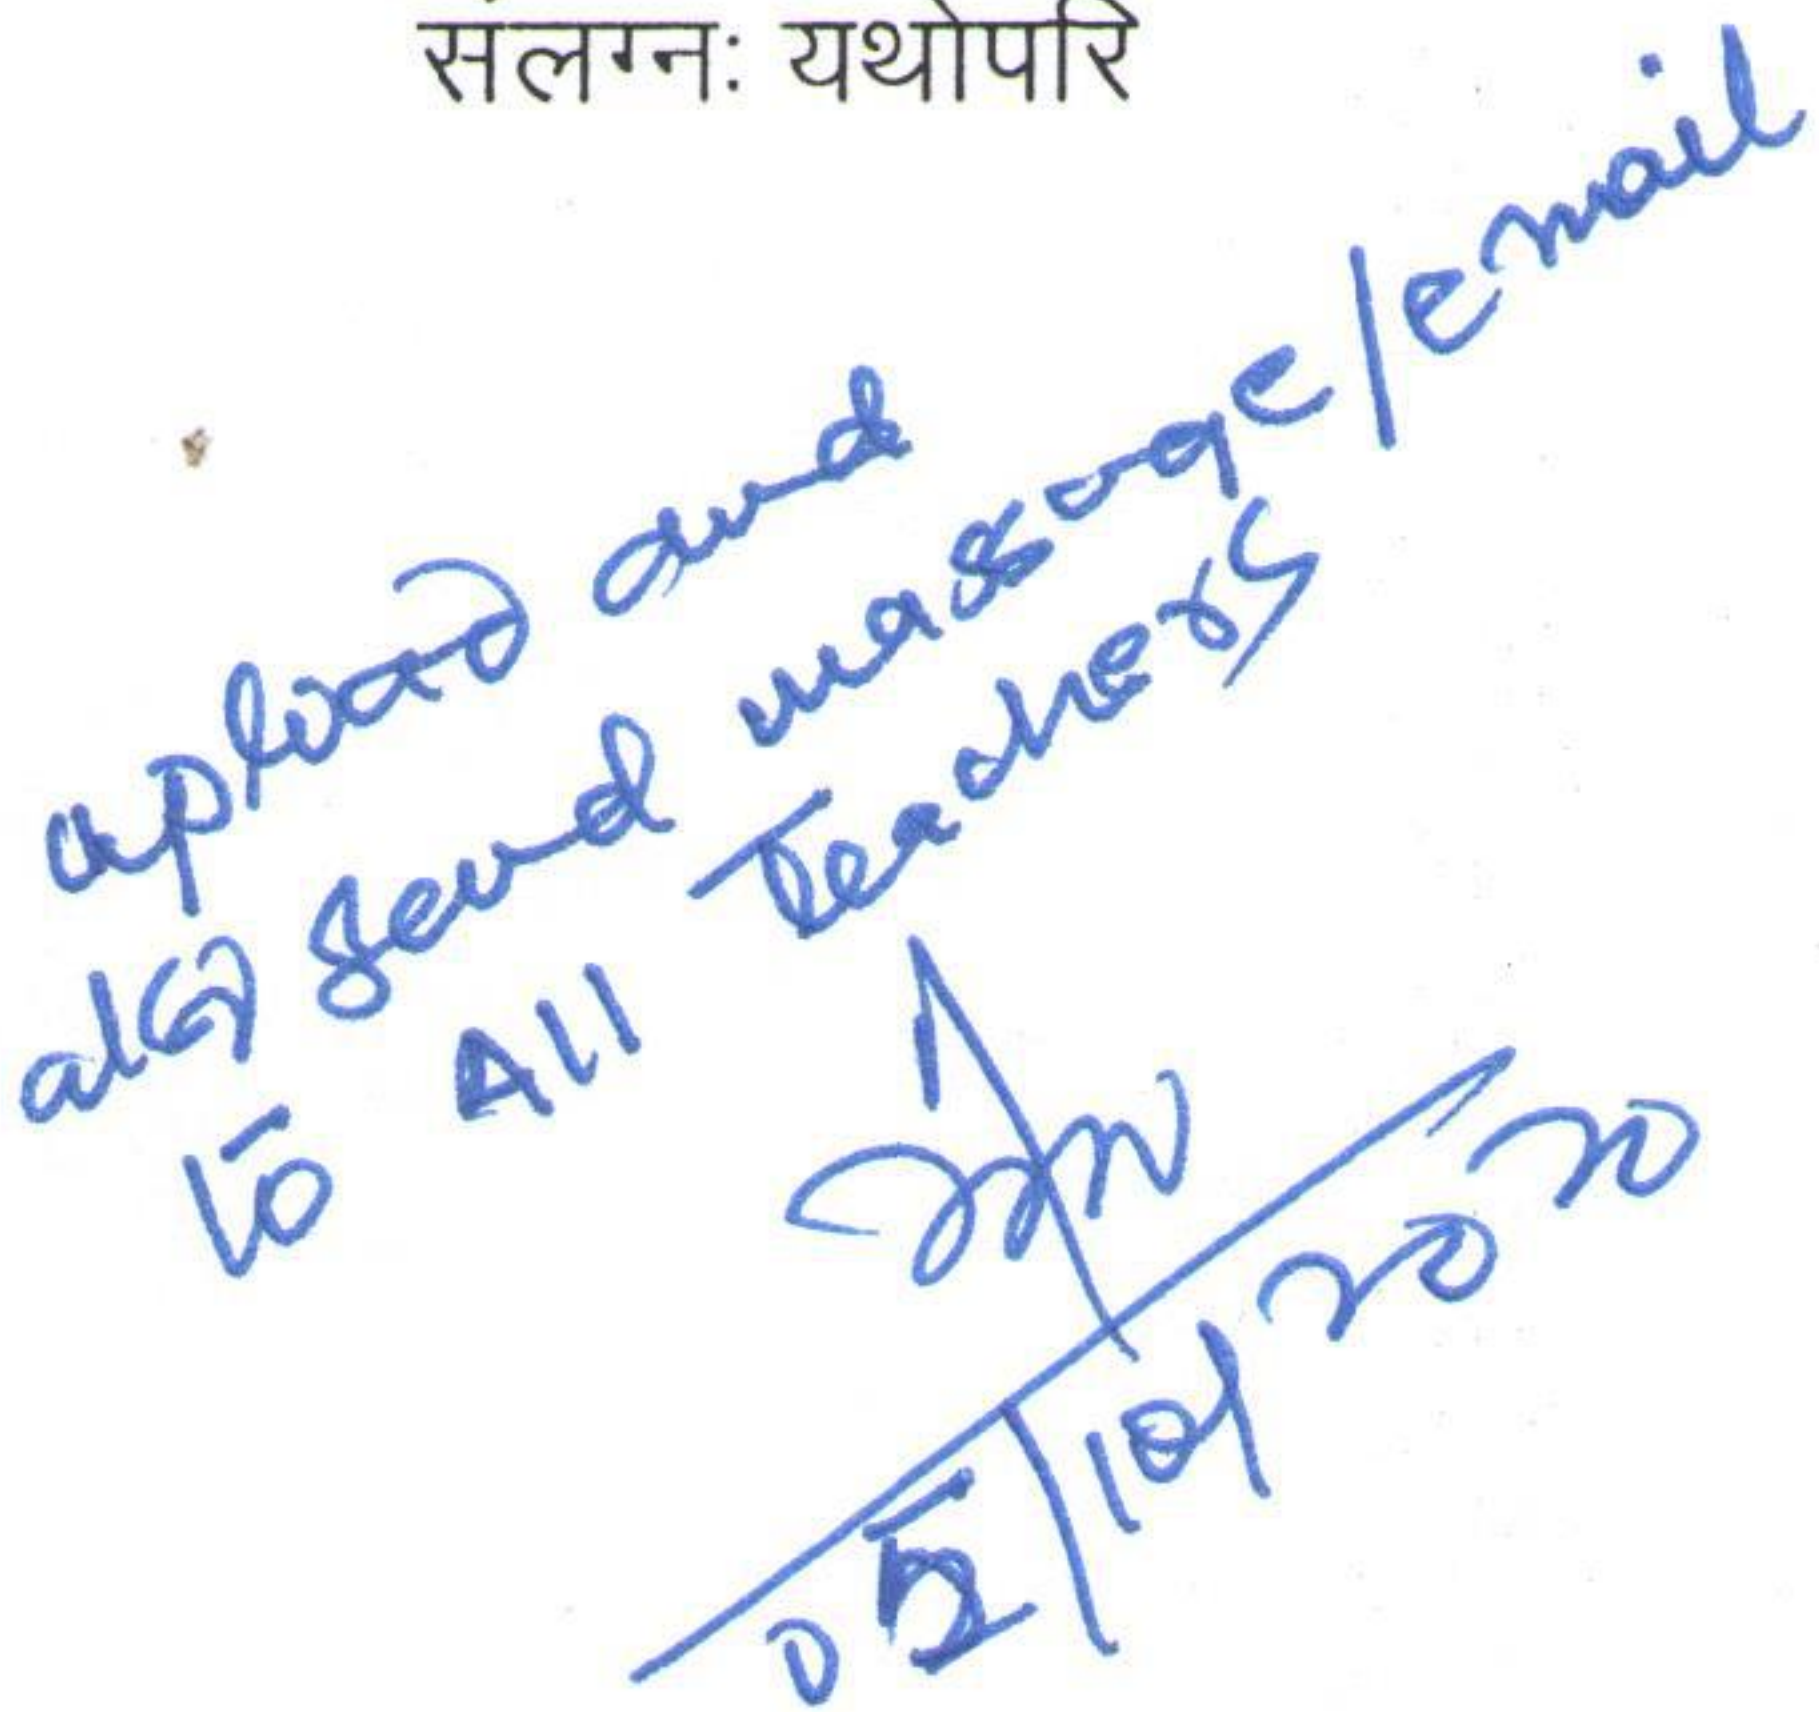 संलग्न: यथोपरि
upload and
also send massage/email
to All Teachers
/10/2020